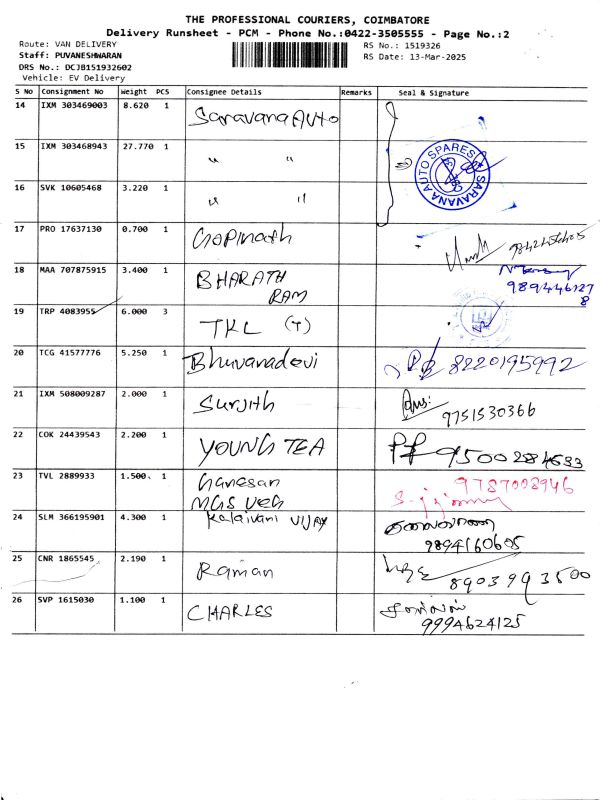 THE PROFESSIONAL COURIERS, COIMBATORE
Delivery Runsheet - PCM - Phone No.:0422-3505555 - Page No.:2
Route: VAN DELIVERY
RS No.: 1519326
Staff: PUVANESHWARAN
RS Date: 13-Mar-2025
DRS No.: DCJB151932602
Vehicle: EV Delivery
S No Consignment No Weight PCS Consignee Details Remarks Seal & Signature
14 IXM 303469003 8.620 1 Saravana Auto
15 IXM 303468943 27.770 1 " "
SARAVANA AUTO SPARES
16 SVK 10605468 3.220 1 " "
17 PRO 17637130 0.700 1 Gopinath
18 MAA 707875915 3.400 1 BHARATH
RAM
9894461278
19 TRP 4083955 6.000 3 TKL (T)
20 TCG 41577776 5.250 1 Bhuvanadevi 8220195992
21 IXM 508009287 2.000 1 Surjith
9751530366
22 COK 24439543 2.200 1 YOUNG TEA 9500284633
23 TVL 2889933 1.500 1 Ganesan
MGS VEG
9787008946
24 SLM 366195901 4.300 1 Kalaivani VIJAY கலைவாணி
9894160605
25 CNR 1865545 2.190 1 Raman
8903993500
26 SVP 1615030 1.100 1 CHARLES
9994624125